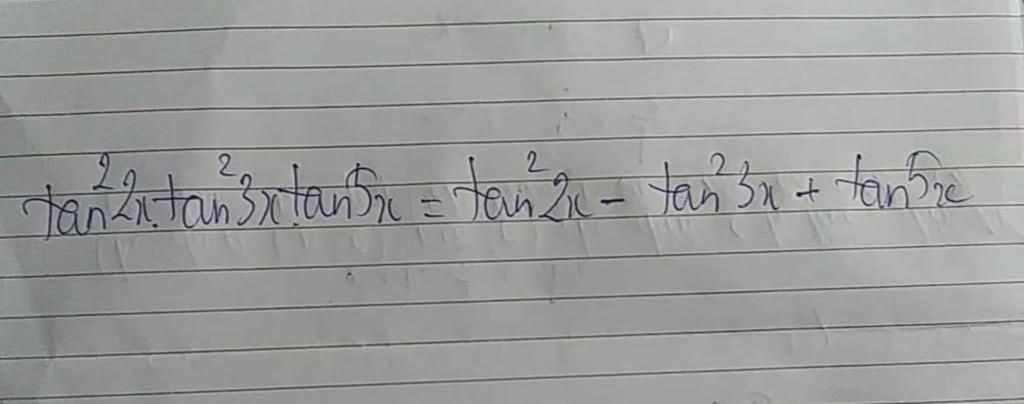 tan²2x.tan²3x.tan5x = tan²2x - tan²3x + tan5x